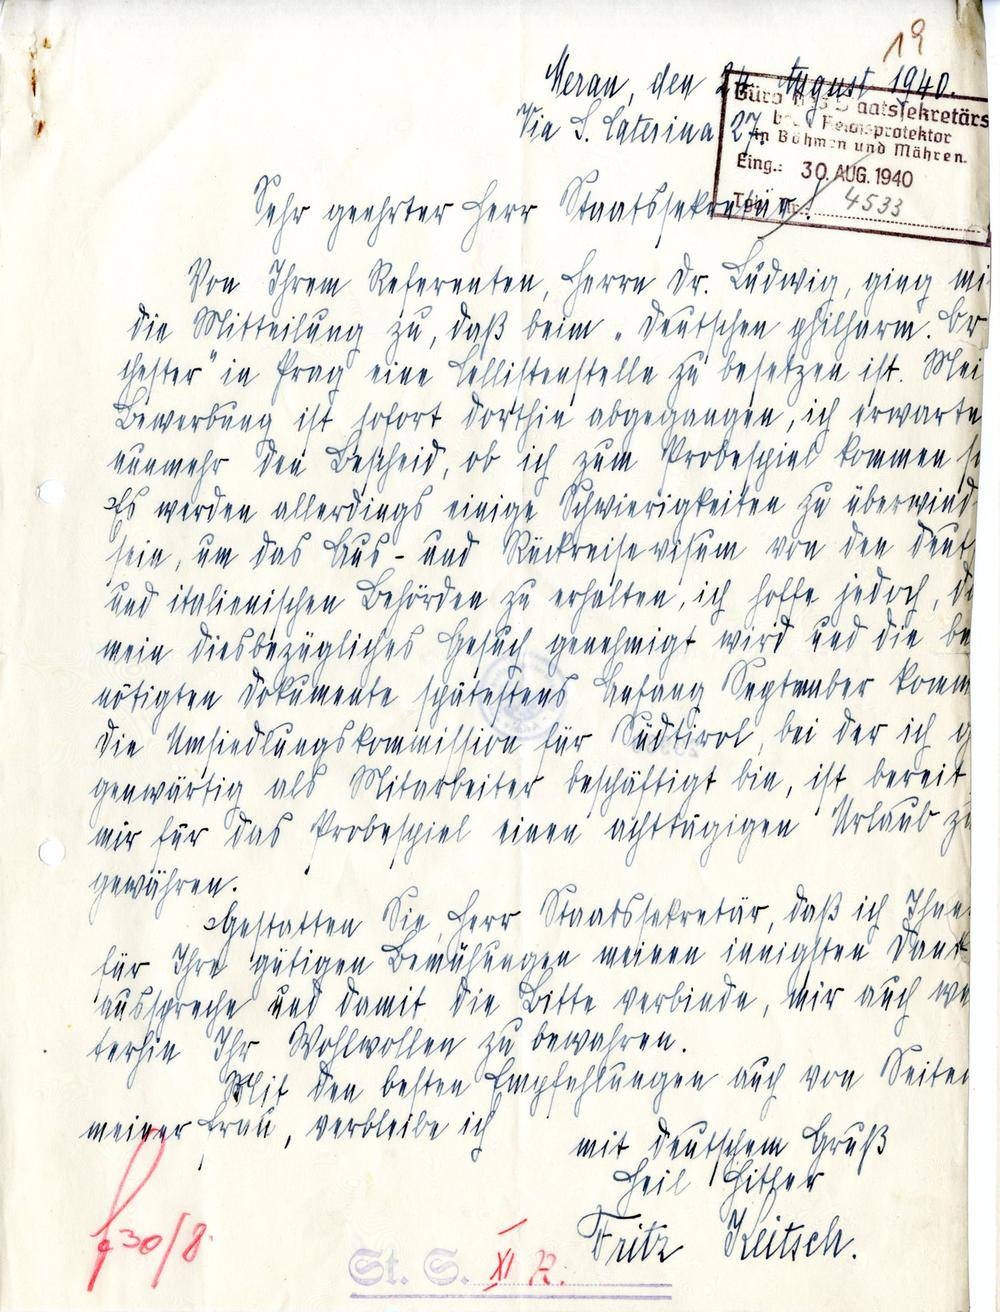 19
Meran, den 24. August 1940.
Via S. Caterina 27.
Büro des Staatssekretärs
beim Reichsprotektor
in Böhmen und Mähren.
Eing.: 30. AUG. 1940
Tgb. Nr.: 4533
Sehr geehrter Herr Staatssekretär!
Von Ihrem Referenten, Herrn Dr. Ludwig, ging mi
die Mitteilung zu, daß beim „Deutschen philharm. Or
chester" in Prag eine Cellistenstelle zu besetzen ist. Mei
Bewerbung ist sofort dorthin abgegangen, ich erwarte
nunmehr den Bescheid, ob ich zum Probespiel kommen so
Es werden allerdings einige Schwierigkeiten zu überwind
sein, um das Aus- und Rückreisevisum von den deut
und italienischen Behörden zu erhalten, ich hoffe jedoch, da
mein diesbezügliches Gesuch genehmigt wird und die be
nötigten Dokumente spätestens Anfang September komm
Die Umsiedlungskommission für Südtirol, bei der ich g
genwärtig als Mitarbeiter beschäftigt bin, ist bereit
mir für das Probespiel einen achttägigen Urlaub zu
gewähren.
Gestatten Sie, Herr Staatssekretär, daß ich Ihne
für Ihre gütigen Bemühungen meinen innigsten Dank
ausspreche und damit die Bitte verbinde, mir auch we
terhin Ihr Wohlwollen zu bewahren.
Mit den besten Empfehlungen auch von Seiten
meiner Frau, verbleibe ich
mit deutschem Gruß
Heil Hitler
Fritz Keitsch.
30/8.
St. S. XI